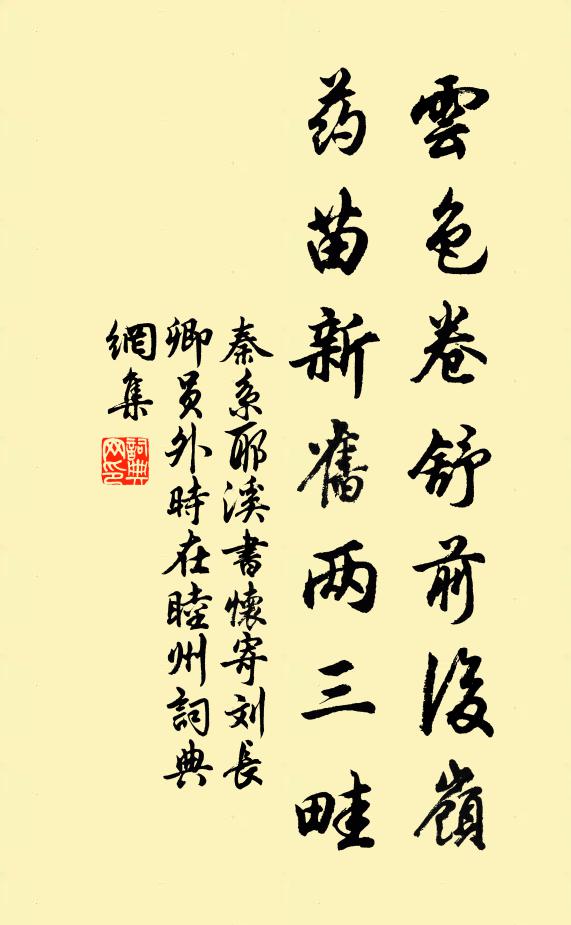 雲色卷舒前後嶺
药苗新舊两三畦
秦系耶溪書懷寄刘長
卿員外時在睦州詞典
網集
詞典网印